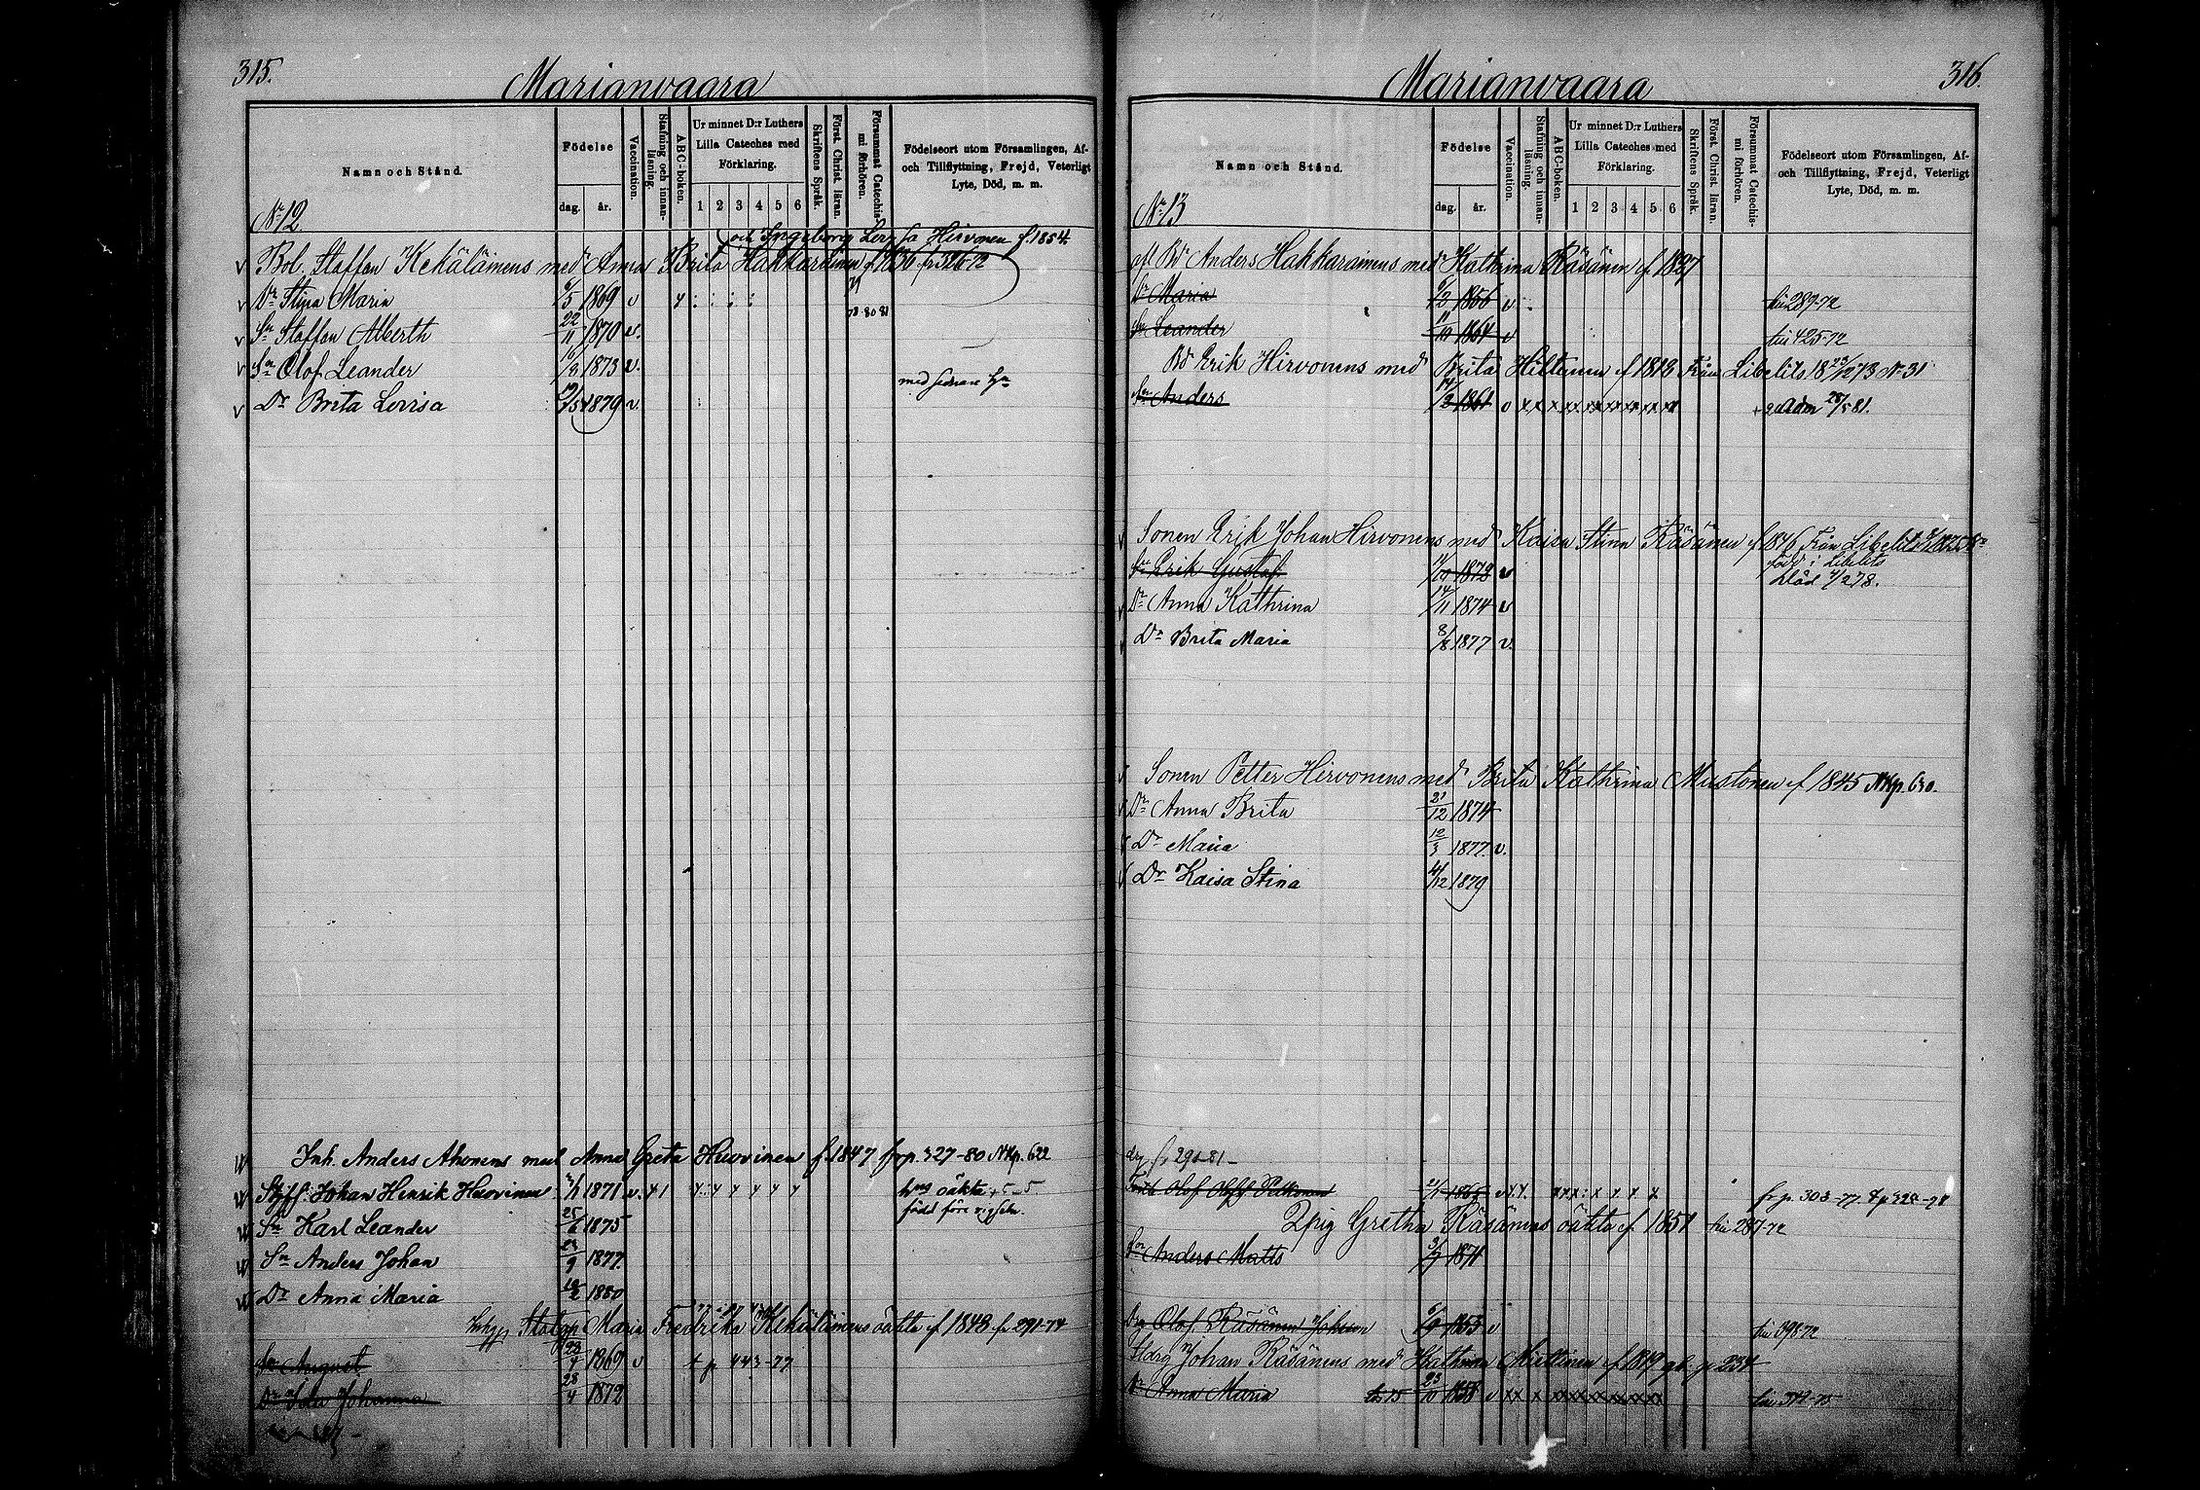 315.
Marianvaara
Namn och Stånd.
Födelse
dag. år.
Vaccination.
Stafning och innanläsning.
ABC-boken.
Ur minnet D:r Luthers
Lilla Cateches med
Förklaring.
1 2 3 4 5 6
Skriftens Språk.
Först. Christ. läran.
Försummat Catechismi förhören.
Födelseort utom Församlingen, Af-
och Tillflyttning, Frejd, Veterligt
Lyte, Död, m. m.
No 12
och Ingeborg Lovisa Hirvonen f. 1854.
v Bol. Staffan Kekäläinens med Anna Brita Hakkarainen f. 1830 fr. 326-72
v Dr Stina Maria 6/5 1869 v
78. 80 81
v Sn Staffan Alberth 22/11 1870 v.
v Sn Olof Leander 16/8 1873 v.
med senare
v Dr Brita Lovisa 1879 v.
Inh. Anders Ahonens med Anna Greta Huovinen f. 1847 fr p. 327-80 NKp. 622
Styfs. Johan Henrik Huovinen 1871 v.
oäkta
född före vigseln.
Sn Karl Leander 25/6 1875
Sn Anders Johan 1877.
Dr Anna Maria 1880
Maria Fredrika Kekäläinens oäkta f. 1843 fr 291-74
Sn August 23/7 1869 v + p 443-77
Dr Ida Johanna 28/4 1872
316.
Marianvaara
Namn och Stånd.
Födelse
dag. år.
Vaccination.
Stafning och innanläsning.
ABC-boken.
Ur minnet D:r Luthers
Lilla Cateches med
Förklaring.
1 2 3 4 5 6
Skriftens Språk.
Först. Christ. läran.
Försummat Catechismi förhören.
Födelseort utom Församlingen, Af-
och Tillflyttning, Frejd, Veterligt
Lyte, Död, m. m.
No 13
afl. Bd Anders Hakkarainens med Kathrina Räsänen f. 1827
Dr Maria 1856 v till 287-72
Sn Leander 11/10 1864 v till 425-72
Bd Erik Hirvonens med Brita Hiltunen f 1813 Från Libelits 1873 No 31
Sn Anders 14/2 1861 v 28/5 81.
v Sonen Erik Johan Hirvonens med Kaisa Stina Räsänen f 1846 Från Libelits
född i Libelits
Sn Erik Gustaf 1873 v
död 4/2 78.
Dr Anna Kathrina 14/11 1874 v
Dr Brita Maria 8/8 1877 v.
Sonen Petter Hirvonens med Brita Kathrina Mustonen f 1845 NKp. 630.
Dr Anna Brita 21/12 1874
Dr Maria 12/3 1877. v.
Dr Kaisa Stina 1879
drg fr 290-81-
Olof 1865 fr p. 303-77.
Gretha Räsänens oäkta f. 1851 till 287-72
Sn Anders Matts 1871
Drg Olof Räsänen 1853 v till 398-72
Johan Räsänens med Kathrina Miettinen f 1819 p 234
Dr Anna Maria 23/10 1858 v till 374-75